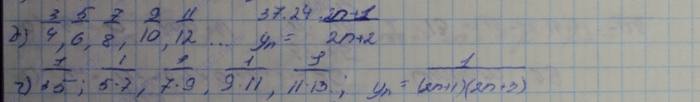 37.24.
д) 3/4, 5/6, 7/8, 9/10, 11/12 ... yn = 2n+1/2n+2
г) 1/3·5; 1/5·7, 1/7·9, 1/9·11, 1/11·13; yn = 1/(2n+1)(2n+3)